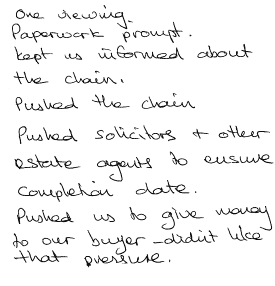 One viewing.
Paperwork prompt.
kept us informed about
the chain.
Pushed the chain
Pushed solicitors + other
estate agents to ensure
completion date.
Pushed us to give money
to our buyer - didn't like
that pressure.